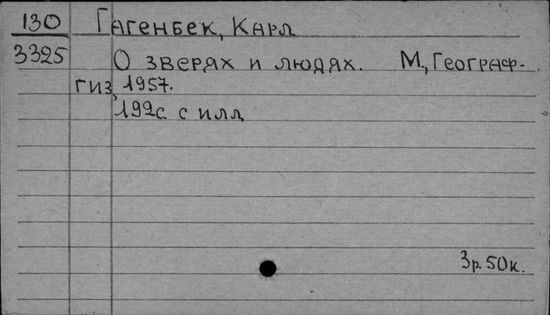 130 Гагенбек, Карл
3325 О зверях и людях. М., Географ-
гиз, 1957.
192с. с илл
3р. 50к.